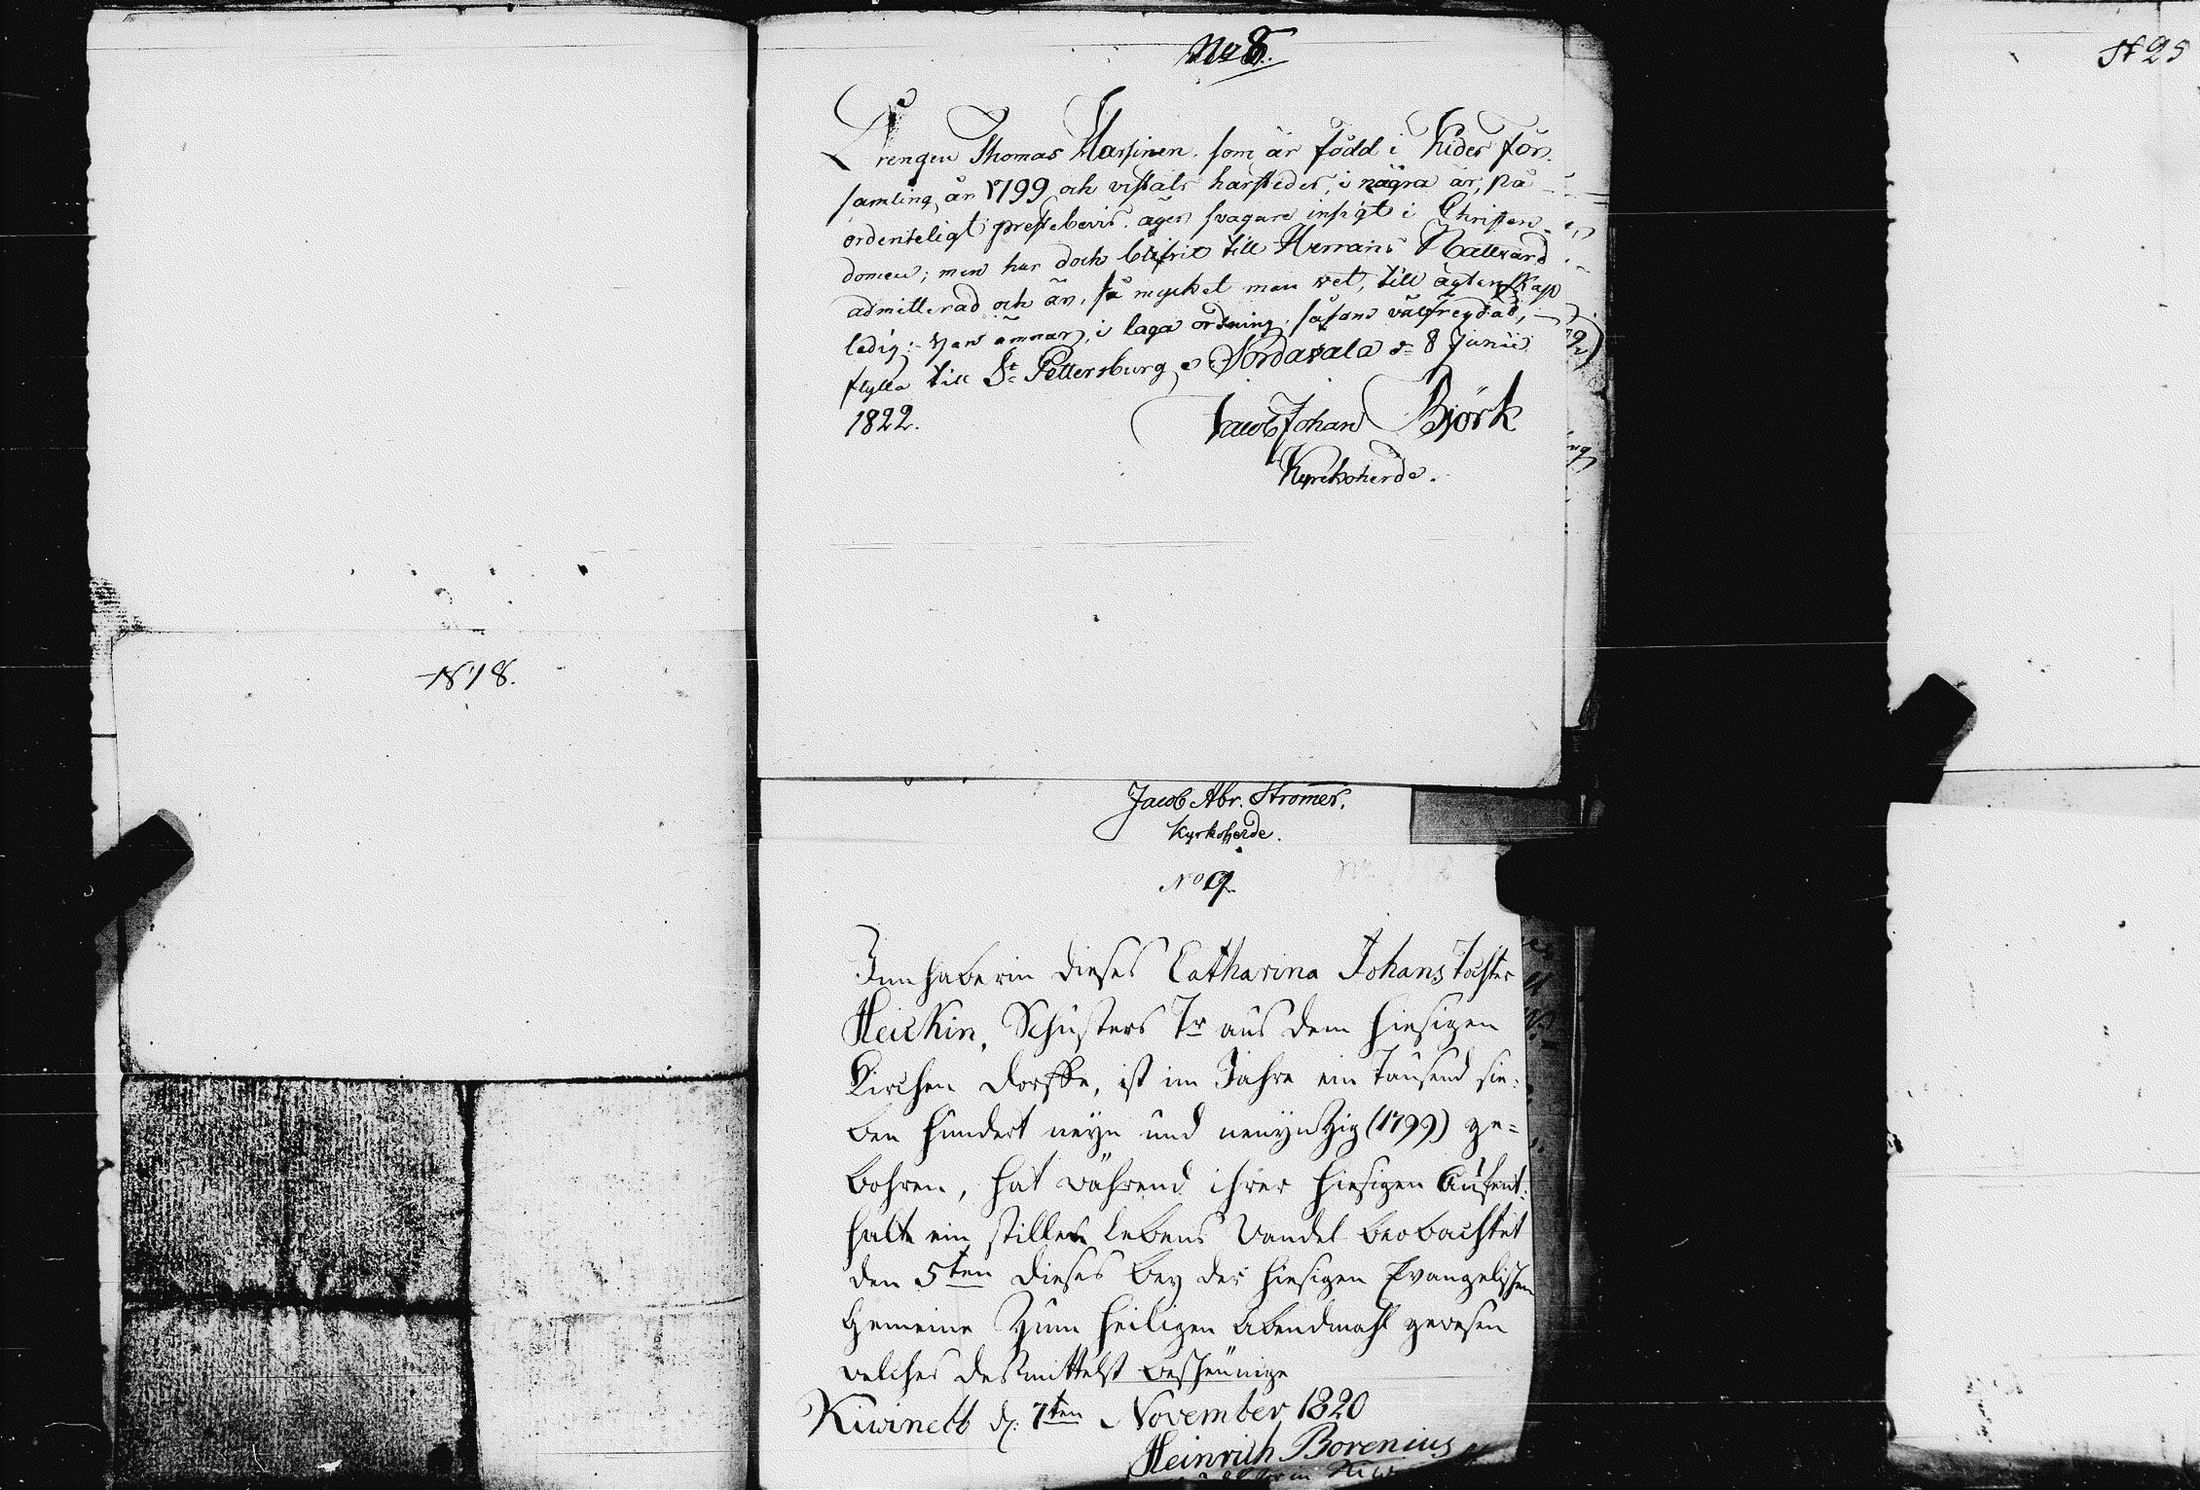 1818.
No 8.
Drengen Thomas Harsinen som är född i Kides för-
samling år 1799 och vistats härstedes, i några år, på
ordenteligt prestebevis, äger svagare insigt i Christen-
domen; men har doch blifvit till Herrans Nattvard
admitterad och är, så myket man vet, till ägtenskap
ledig: Han ämnar, i laga ordning, såsom välfreydad,
flytta till St Pettersburg, Sordavala d= 8 Junii
1822.
Jacob Johan Björk
Kyrckoherde.
Jacob Abr. Stromer.
Kyrkoherde.
No 9.
Innhaberin dieses Catharina Johans Tochter
Heickin, Schusters Tr aus dem hiesigen
Kirchen dorffe, ist im Jahre ein Tausend sie-
ben hundert neyn und neuynzig (1799) ge=
bohren, hat während ihrer hiesigen Aufent-
halte ein stilles Lebens Wandel beobachtet
den 5ten dieses bey der hiesigen Evangelischen
Gemeine zum heiligen Abendmahl gewesen
welches desmittelst bescheinige
Kiwineb d. 7ten November 1820
Heinrich Borenius
N 25